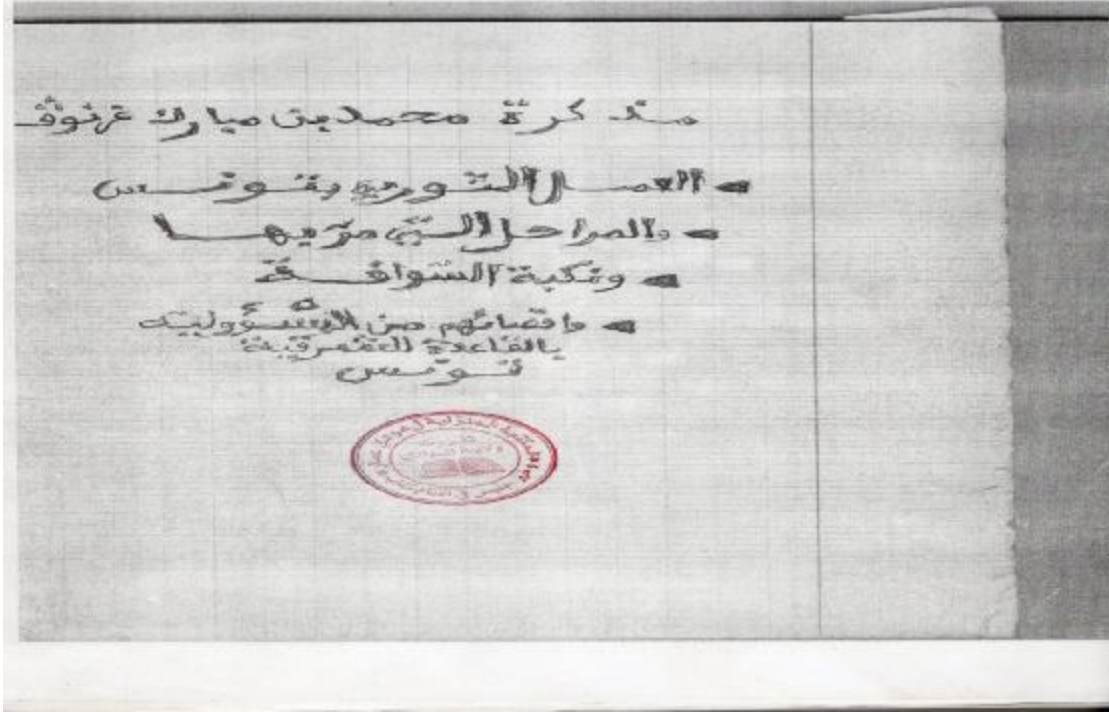 مذكرة محمد بن مبارك غرنوڨ
- العمل الثوري بتونس
- والمراحل التي مرّ بها
- ونكبة الشوافة
- واقصائهم من المسؤولية
بالقاعدة الشرقية
تونس